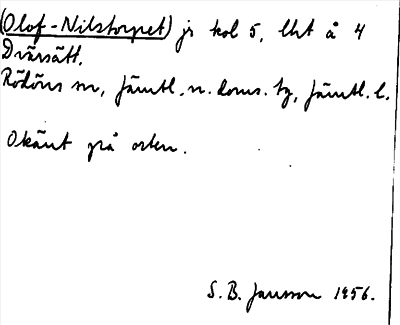 (Olof-Nilstorpet) js kol 5, lht å 4
Dvärsätt.
Rödöns sn, Jämtl. n. doms. tg, Jämtl. l.
Okänt på orten.
S. B. Jansson 1956.